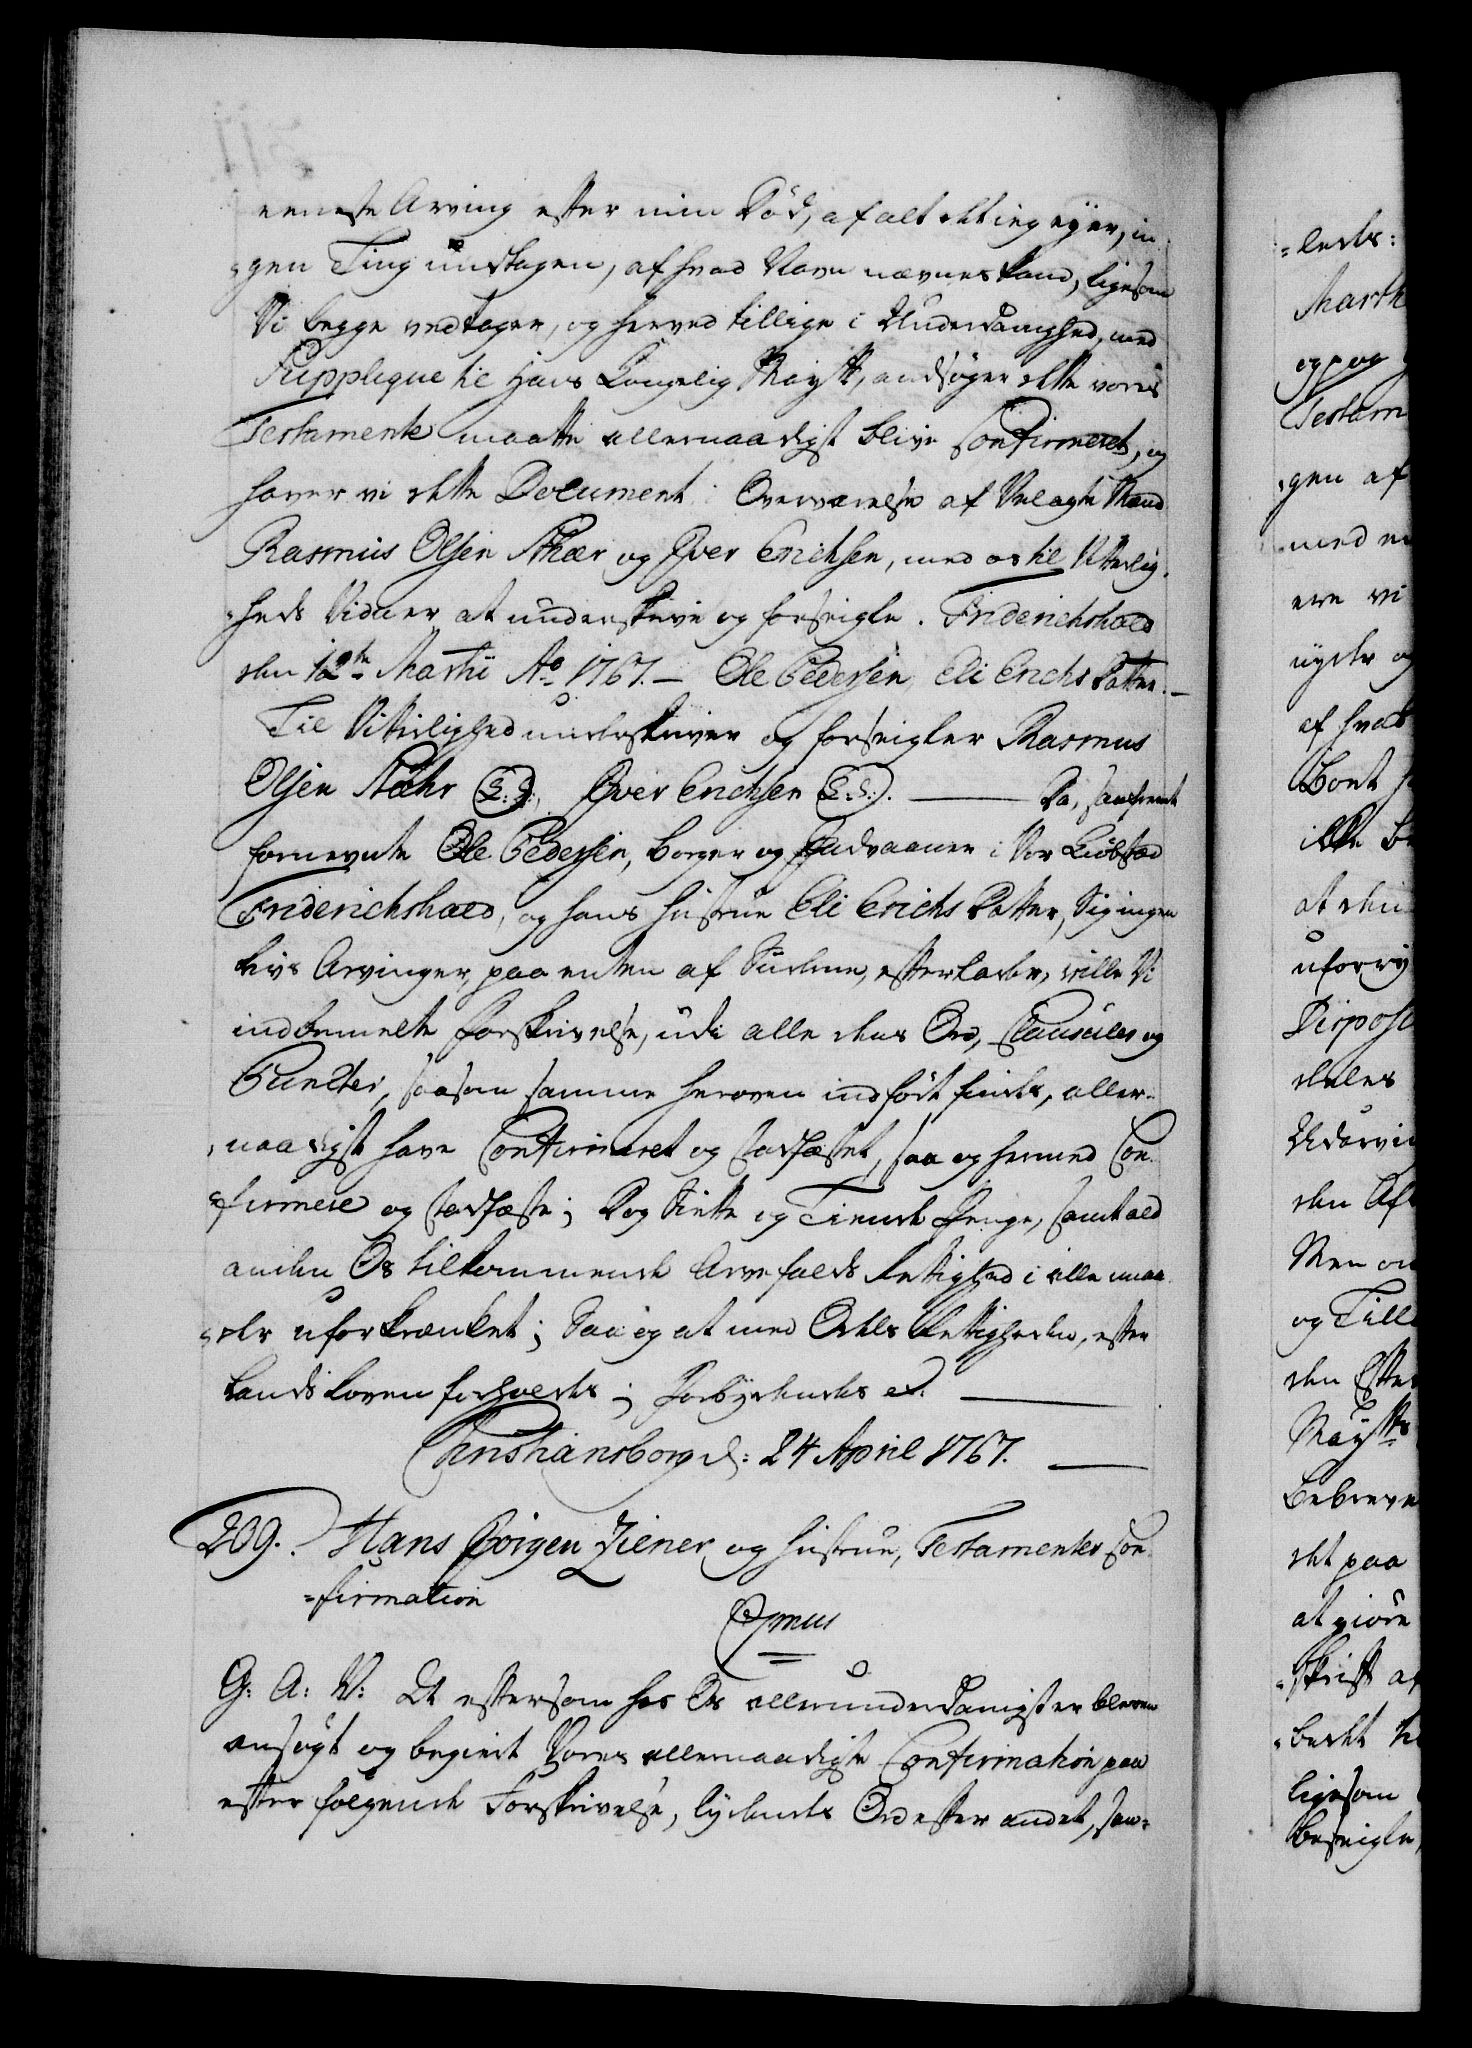 eeneste Arving efter min Död, af alt det ieg eyer, in-
=gen Ting undtagen, af hvad Navn nævnes kand, ligesom
Vi begge vedtager, og herved tillige i Underdanighed, med
Supplique til Hans Kongelig Mayst, andsöger dette vores
Testamente maatte allernaadigst blive confirmeret, og
haver vi dette Document i Overværelse af Velagte Mænd
Rasmus Olsen Khær og Iver Erichsen, med os til Vitterlig-
=heds Vidner at underskrive og forseigle. Friderichshald
den 12te Martii Ao 1767. — Ole Pedersen, Eli Erichs Datter. —
Til Vitterlighed underskriver og forseigler Rasmus
Olsen Kæhr (L:S:), Iver Erichsen (L:S:). — Da, saafremt
fornevnte Ole Pedersen, Borger og Indvaaner i Vor Kiöbstæd
Friderichshald, og hans Hustrue Eli Erichs Datter, Sig ingen
Livs Arvinger, paa enten af Siderne, efterlader, ville Vi
indbemelte Forskrivelse, udi alle dens Ord, Clausuler og
Puncter, saasom samme heroven indfört findes, aller-
=naadigst have Confirmeret og stadfæstet, saa og hermed Con-
=firmere og stadfæste; Dog Siette og Tiende Penge, samt ald
anden Os tilkommende Arvefalds Rettighed i alle maa-
=der uforkrænket; Saa og at med Odels Rettigheden, efter
Lands Loven forholdes; Forbydendes etc. —
Christiansborg d: 24 April 1767. —
209. Hans Jörgen Ziener og Hustrue, Testamentes Con-
=firmation
G: A: V: At eftersom hos Os allerunderdanigst er bleven
ansögt og begiert Vores allernaadigste Confirmation paa
efterfölgende Forskrivelse, lydendes Ord efter andet, saa=
=ledes:
Marth
og
Testam
=gen af
med
ere vi
nyde og
af hvad
Bort
ikke
at den
uforry
Disposi
deles
Udarvi
den Aft
Men
og Till
den Efter
Mayts
Bebreve
det paa
at giöre
=skrift
=bedet
ligesom
beseigle,